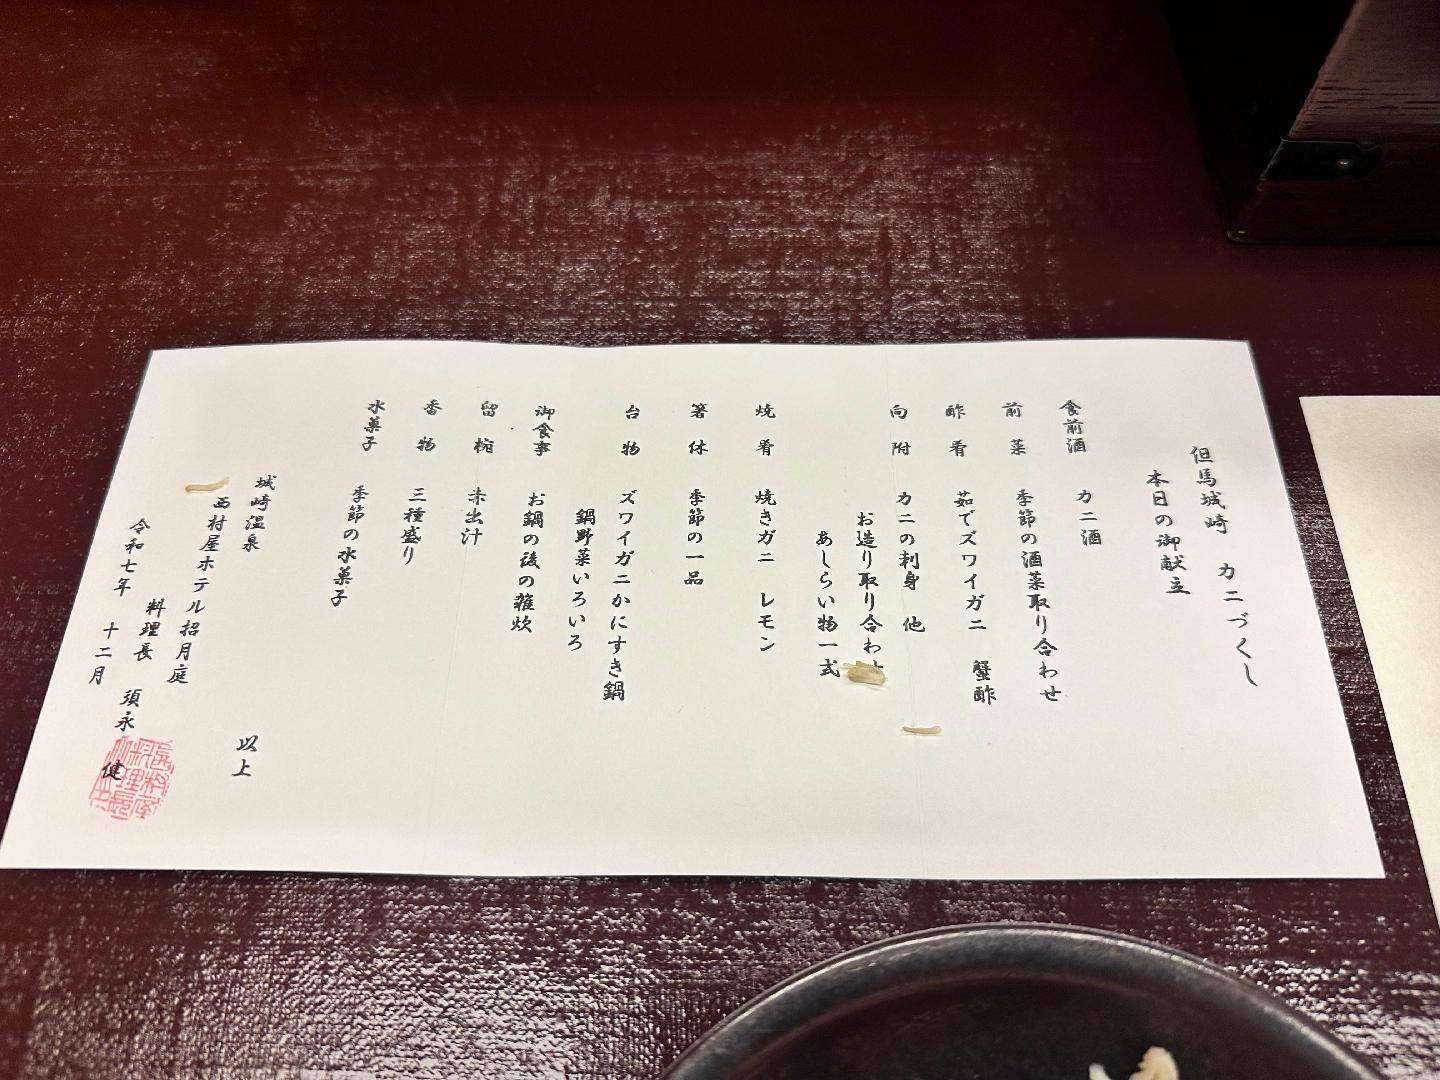 但馬城崎 カニづくし
本日の御献立
食前酒 カニ酒
前菜 季節の酒菜取り合わせ
酢肴 茹でズワイガニ 蟹酢
向附 カニの刺身 他
お造り取り合わ
あしらい物一式
焼肴 焼きガニ レモン
箸休 季節の一品
台物 ズワイガニかにすき鍋
鍋野菜いろいろ
御食事 お鍋の後の雑炊
留椀 赤出汁
香物 三種盛り
水菓子 季節の水菓子
以上
城崎温泉
西村屋ホテル招月庭
料理長 須永 健
令和七年 十二月